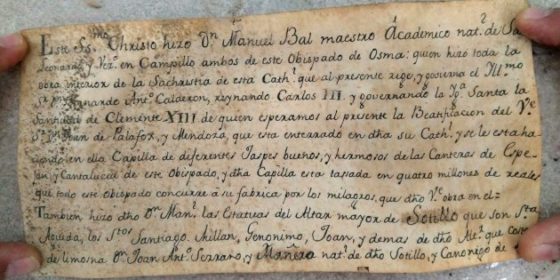 Este Ssmo. Christo hizo Dn. Manuel Bal maestro Academico natl. de Sn.
Leonardo, y Vezo. en Campillo ambos de este Obispado de Osma: quien hizo toda la
obra interior de la Sachristia de esta Cathl. que al presente rige, y govierna el Illmo
Sr. Dn. Bernardo Anto. Calderon, reynando Carlos III. y governando la Iga. Santa la
Santidad de Clemente XIII de quien esperamos al presente la Beatificacion del Ve.
Sr. Dn. Juan de Palafox, y Mendoza, que esta enterrado en dha su Cathl. y se le esta ha
ciendo en ella Capilla de diferentes Jaspes buenos, y hermosos de las Canteras de Espe
jon, y Cantalucia de este Obispado, y dha Capilla esta tassada en quatro millones de reales
que todo este Obispado concurre a su fabrica por los milagros, que dho Ve. obra en el=
Tambien hizo dho Dn. Manl. las Estatuas del Altar mayor de Sotillo que son Sta.
Agueda, los Stos. Santiago, Millan, Geronimo, Joan, y demas de dho Alt. que costeo
de limosna Dn. Joan Anto. Serrano, y Mañero natl. de dho Sotillo, y Canonigo de